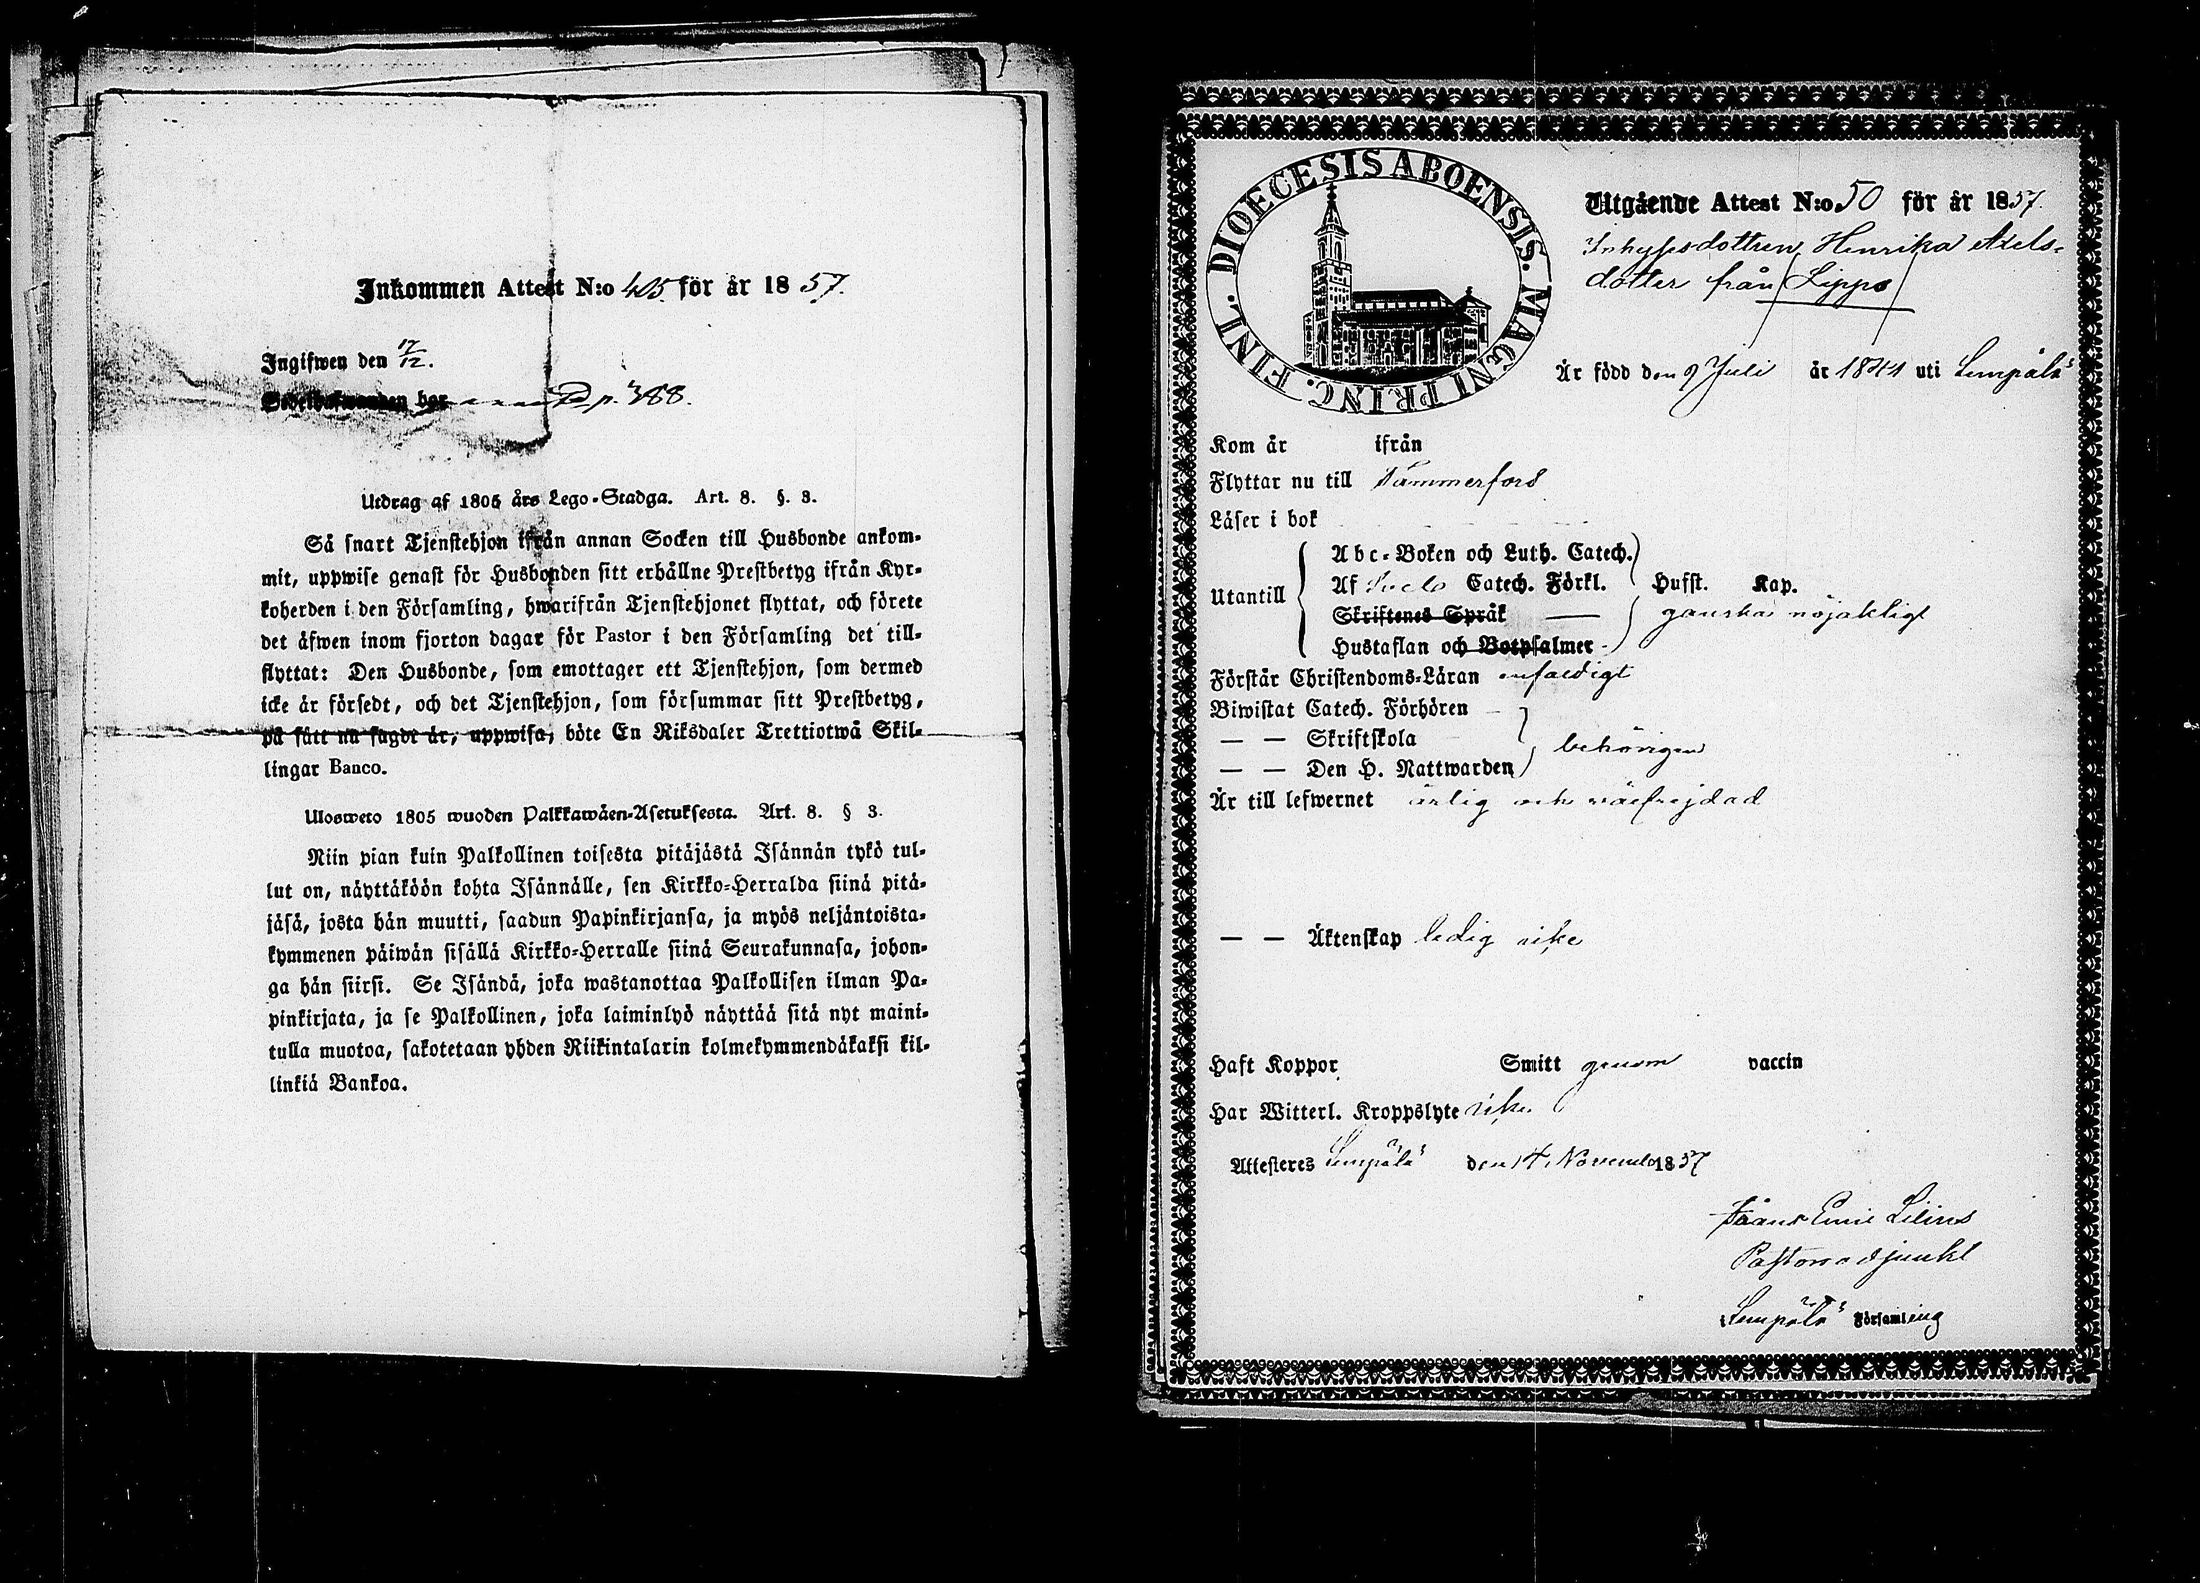 Inkommen Attest N:o 405 för år 1857.
Ingifwen den 17/12.
Sedelhafwanden bor p. 388.
Utdrag af 1805 års Lego-Stadga. Art. 8. §. 3.
Så snart Tjenstehjon ifrån annan Socken till Husbonde ankom-
mit, uppwise genast för Husbonden sitt erhållne Prestbetyg ifrån Kyr-
koherden i den Församling, hwarifrån Tjenstehjonet flyttat, och förete
det äfwen inom fjorton dagar för Pastor i den Församling det till-
flyttat: Den Husbonde, som emottager ett Tjenstehjon, som dermed
icke är försedt, och det Tjenstehjon, som försummar sitt Prestbetyg,
på sätt nu sagdt är, uppwisa, böte En Riksdaler Trettiotwå Skil-
lingar Banco.
Ulosweto 1805 wuoden Palkkawäen-Asetuksesta. Art. 8. § 3.
Niin pian kuin Palkollinen toisesta pitäjästä Isännän tykö tul-
lut on, näyttäköön kohta Isännälle, sen Kirkko-Herralda siinä pitä-
jäsä, josta hän muutti, saadun Papinkirjansa, ja myös neljäntoista-
kymmenen päiwän sisällä Kirkko-Herralle siinä Seurakunnasa, johon-
ga hän siirsi. Se Isändä, joka wastanottaa Palkollisen ilman Pa-
pinkirjata, ja se Palkollinen, joka laiminlyö näyttää sitä nyt maini-
tulla muotoa, sakotetaan yhden Riikintalarin kolmekymmendäkaksi kil-
linkiä Bankoa.
DIOECESIS ABOENSIS. MAGNI PRINC. FINL.
Utgående Attest N:o 50 för år 1857.
Inhysesdottren Henrika Axels-
dotter från Lippo
Är född den 9 Juli år 1841 uti Lempälä
Kom år ifrån
Flyttar nu till Tammerfors
Läser i bok
Utantill
Abc-Boken och Luth. Catech.
Af Catech. Förkl. Husst. Kap.
Skriftenes Språk ganska nöjaktigt
Hustaflan och Botpsalmer
Förstår Christendoms-Läran enfaldigt
Biwistat Catech. Förhören
— — Skriftskola behörigen
— — Den H. Nattwarden
Är till lefwernet ärlig och väefrejdad
— — Äktenskap ledig
Haft Koppor Smitt genom vaccin
Har Witterl. Kroppslyte icke
Attesteres Lempälä den 14 November 1857
Frans Emil Lilius
Pastorsadjunkt
Lempälä Församling